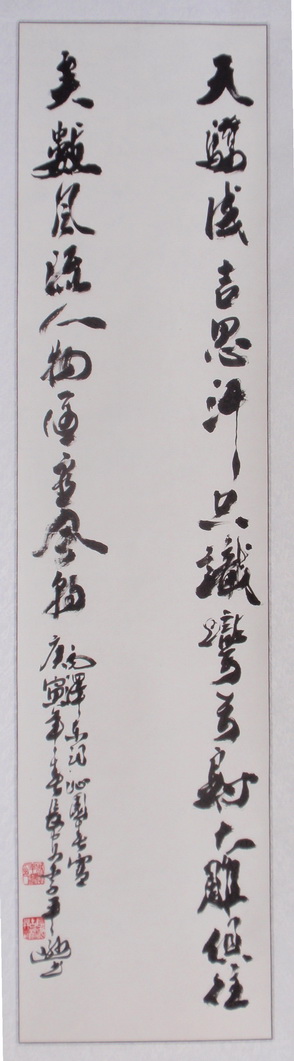 天骄成吉思汗只识弯弓射大雕俱往
矣数风流人物还看今朝
毛泽东词沁园春雪
庚寅年春长安李平